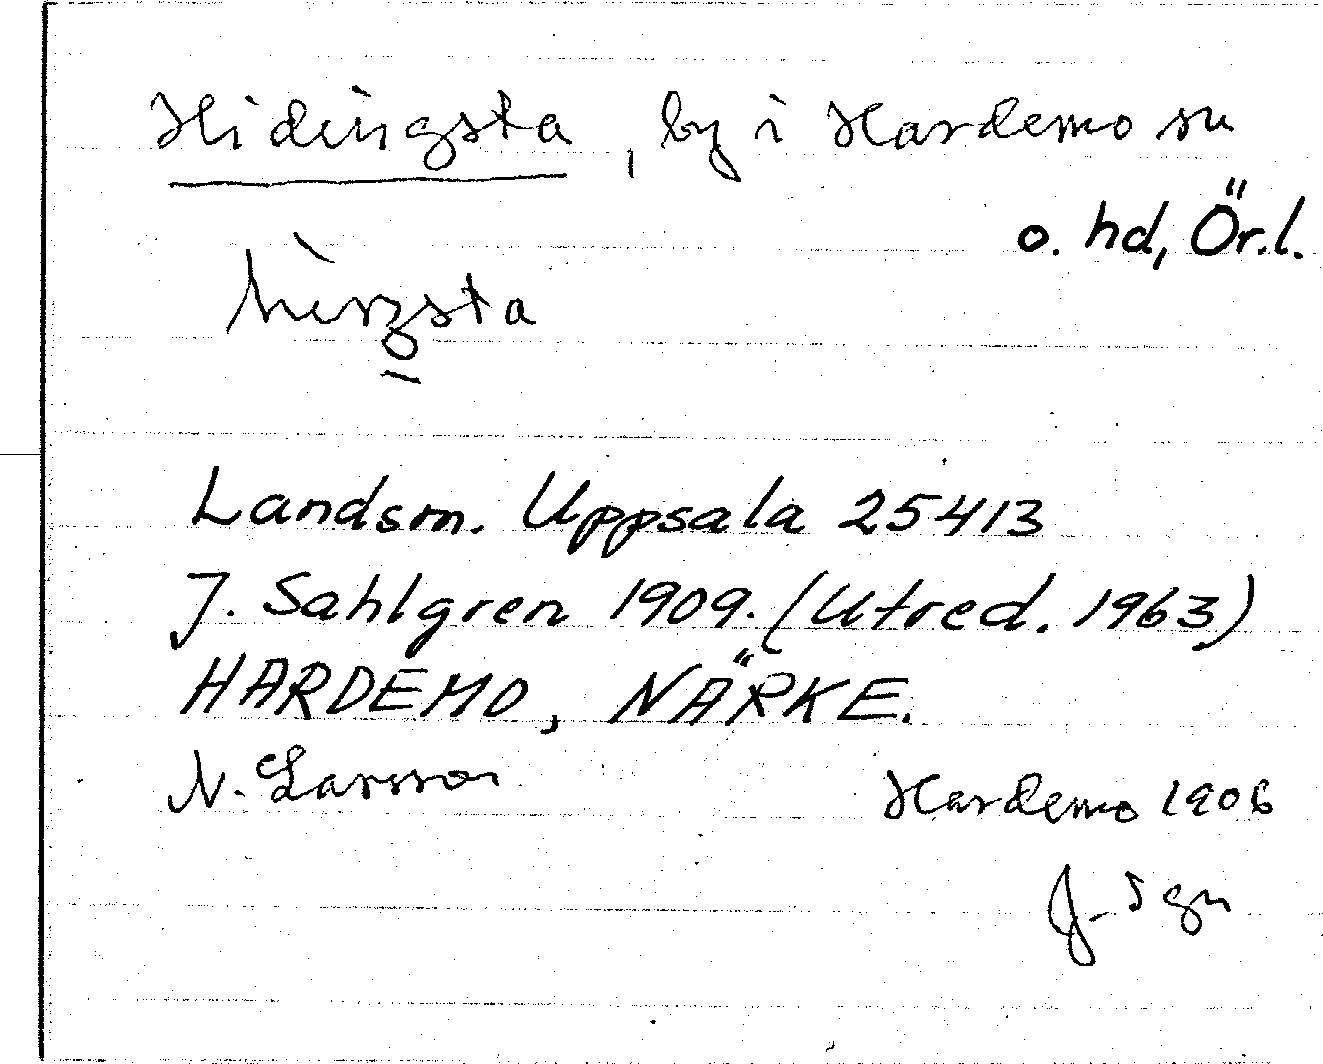 Hidingsta, by i Hardemo sn
o. hd, Ör.l.
Landsm. Uppsala 25413
J. Sahlgren 1909. (Utred. 1963)
HARDEMO, NÄRKE.
N. Larsson
Hardemo 1906
J. Sgn